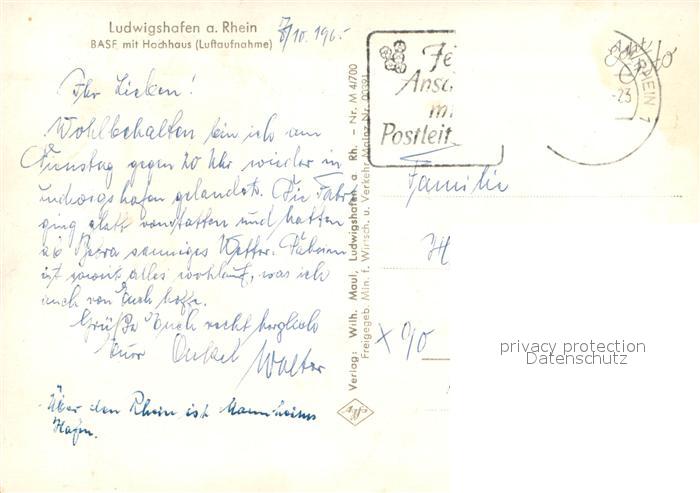 Ludwigshafen a. Rhein
BASF mit Hochhaus (Luftaufnahme)
7/10. 196
Ihr Lieben!
Wohlbehalten bin ich am
Dienstag gegen 20 Uhr wieder in
Ludwigshafen gelandet. Die Fahrt
ging glatt vonstatten und hatten
ab sonniges Wetter. Daheim
ist soweit alles wohlauf, was ich
auch von Euch hoffe.
Grüße Euch recht herzlich
Euer Onkel Walter
Über den Rhein ist Mannheims
Hafen.
Verlag: Wilh. Maul, Ludwigshafen a. Rh. - Nr. M 4/700
Freigegeb. Min. f. Wirtsch. u. Verkehr Mainz Nr.
Agfa
Fe
Ansc
mi
Postleit
RHEIN 1
-23
Familie
H
privacy protection
Datenschutz